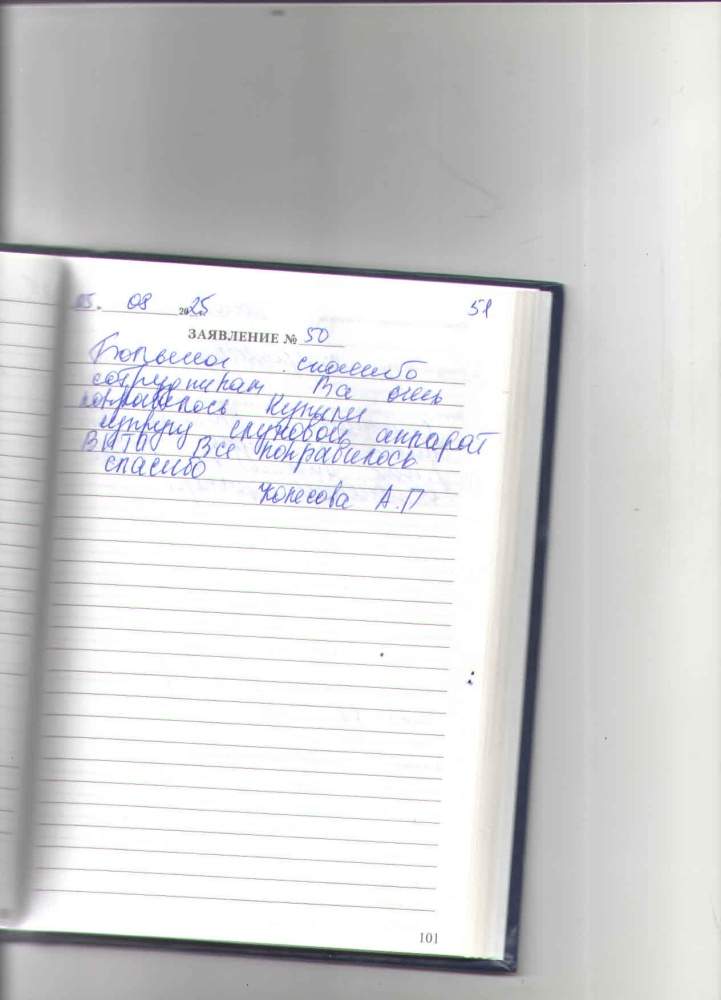 05. 08 2025 51
ЗАЯВЛЕНИЕ № 50
Большое спасибо
сотрудникам Все очень
понравилось Купили
супругу слуховой аппарат
Все понравилось
спасибо
Колесова А.П
101